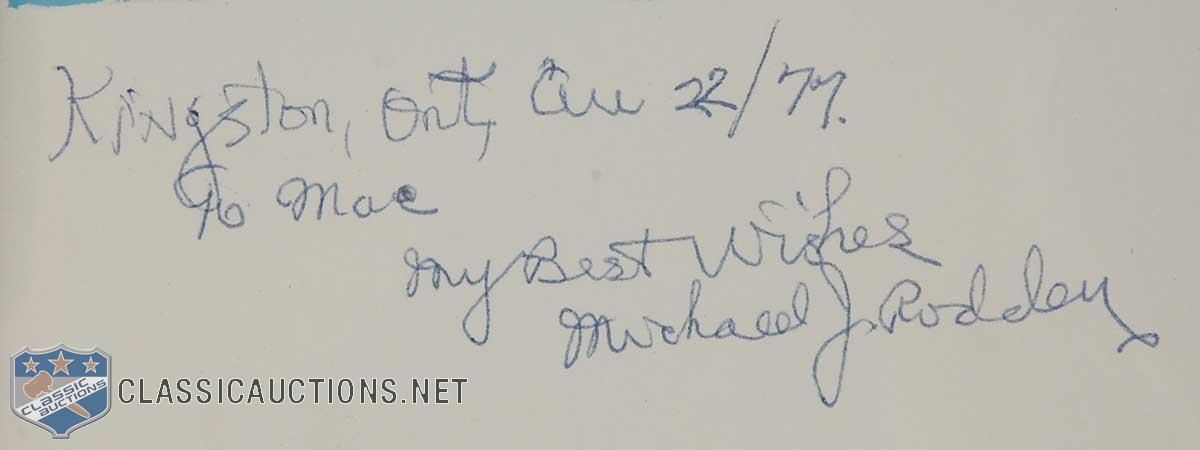 Kingston, Ont, 22/77.
To Mac
My Best Wishes
Michael J. Rodden
CLASSIC AUCTIONS
CLASSICAUCTIONS.NET